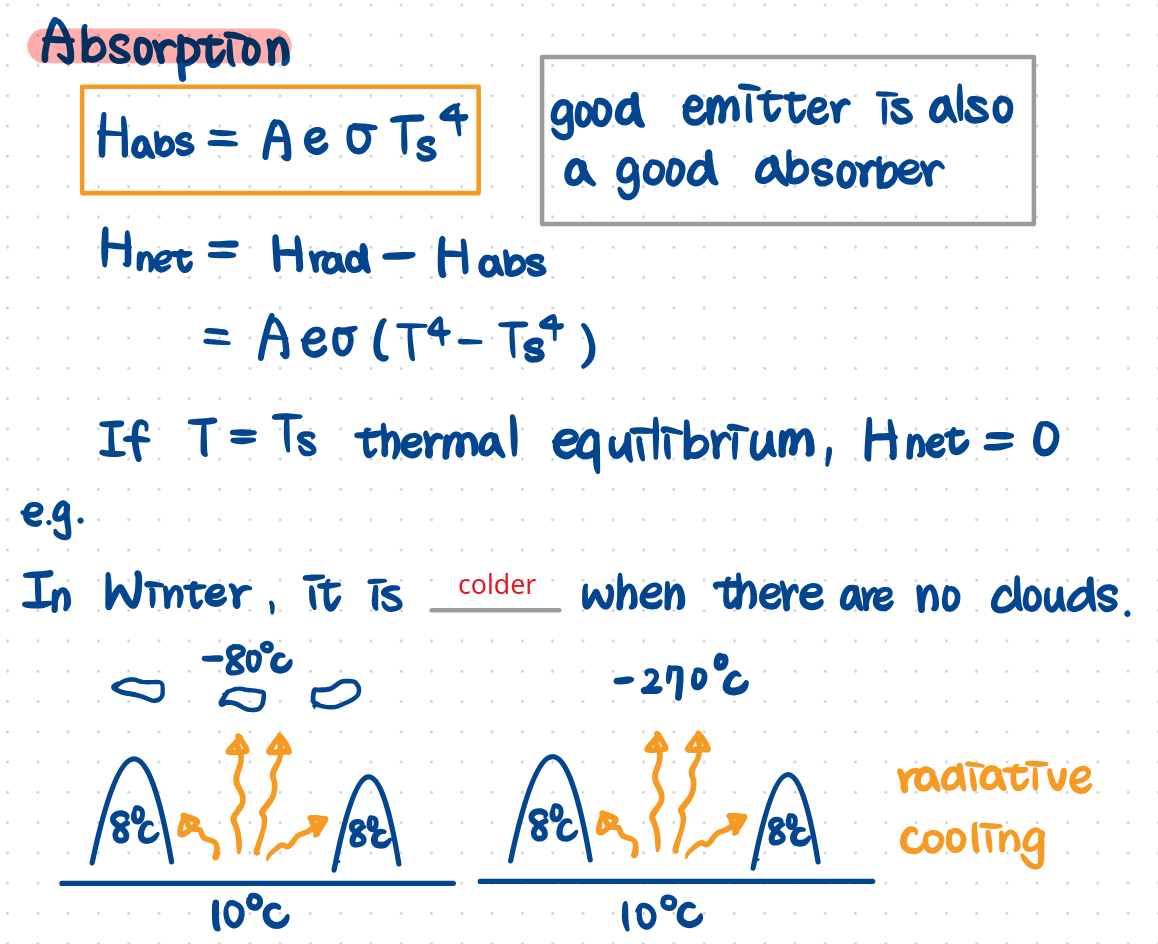 Absorption
Habs = A e σ Ts⁴
good emitter is also
a good absorber
Hnet = Hrad - Habs
= A e σ (T⁴ - Ts⁴)
If T = Ts thermal equilibrium, Hnet = 0
e.g.
In Winter, it is colder when there are no clouds.
-80°C
-270°C
radiative
cooling
8°C 8°C 8°C 8°C
10°C 10°C